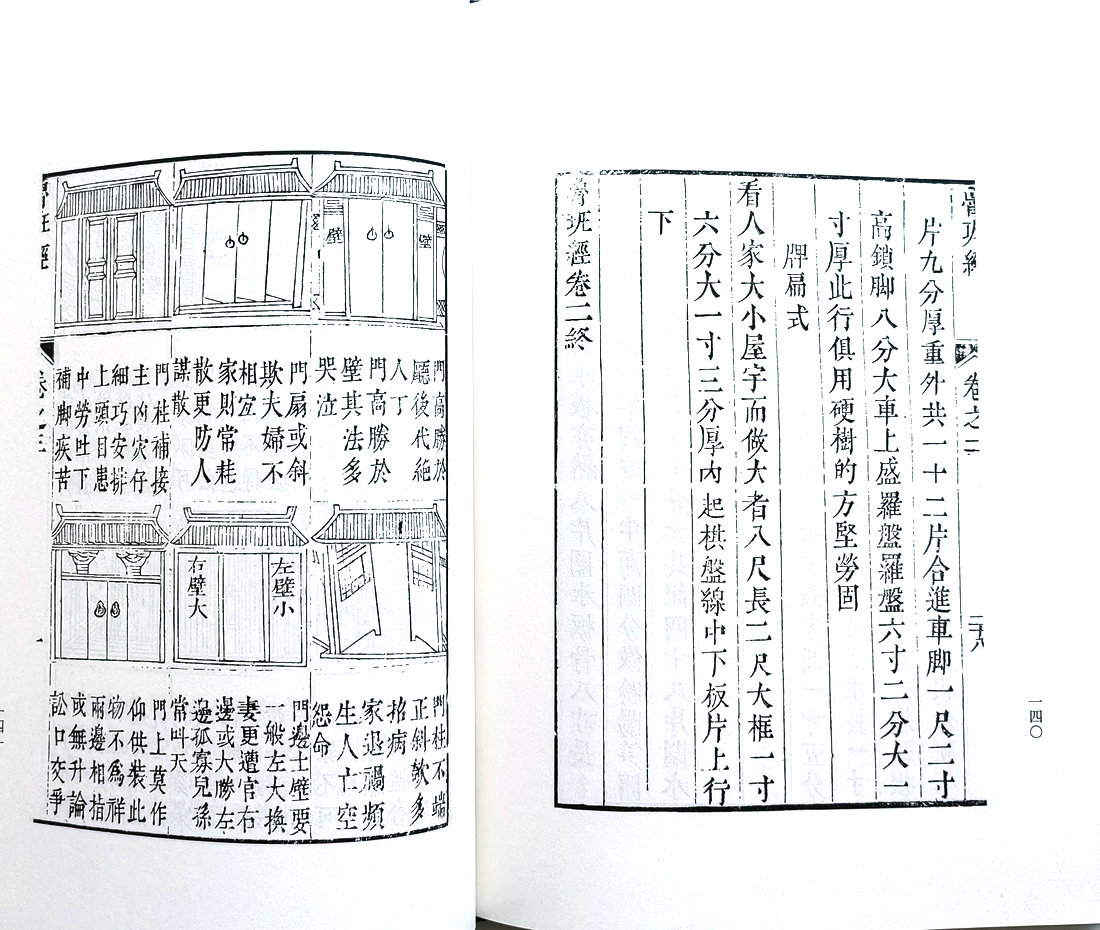 魯班經
卷之二
二十八
片九分厚重外共一十二片合進車脚一尺二寸
高鎖脚八分大車上盛羅盤羅盤六寸二分大一
寸厚此行俱用硬樹的方堅勞固
牌扁式
看人家大小屋宇而做大者八尺長二尺大框一寸
六分大一寸三分厚內起棋盤線中下板片上行
下
魯班經卷二終
一四〇
壁
壁
門高勝於
廳後代絕
人丁
門高勝於
壁其法多
哭泣
門扇或斜
欺夫婦不
相宜
家則常耗
散更防人
謀散
門柱補接
主凶灾仔
細巧安排
上頭目患
中勞吐下
補脚疾苦
左壁小
右壁大
門柱不端
正斜欹多
招病
家退禍頻
生人亡空
怨命
門邊土壁要
一般左大換
妻更遭官右
邊或大勝左
邊孤寡兒孫
常叫天
門上莫作
仰供裝此
物不爲祥
兩邊相指
或無升論
訟口交爭
魯班經
卷之三
一
一四一